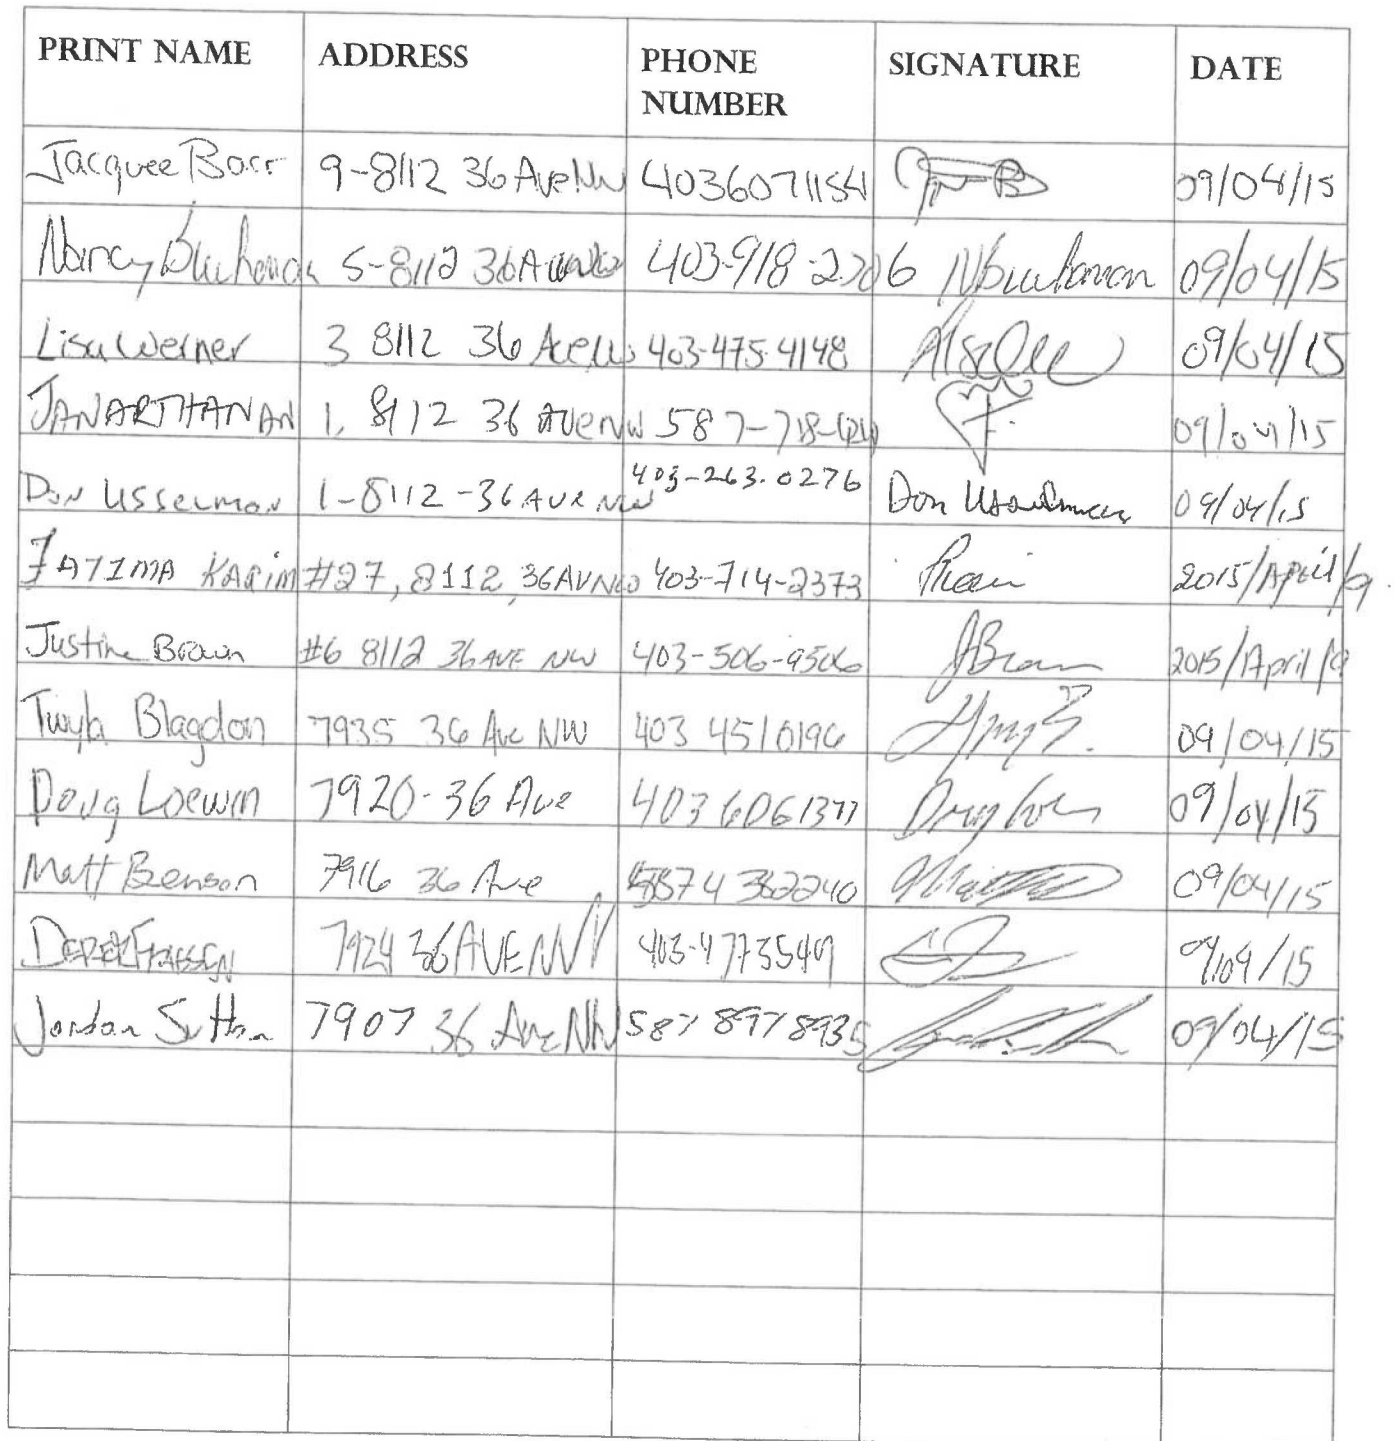 PRINT NAME ADDRESS PHONE NUMBER SIGNATURE DATE
Jacquee Barr 9-8112 36 Ave NW 4036071154 09/04/15
Nancy Buchanan 5-8112 36 Ave NW 403-918-2306 NBuchanan 09/04/15
Lisa Werner 3 8112 36 Ave NW 403-475-4148 09/04/15
JANARTHANAN 1, 8112 36 AVE NW 587-718- 09/04/15
Don Usselman 1-8112-36 AVE NW 403-263.0276 Don Usselman 09/04/15
FATIMA KARIM #27, 8112, 36AVNW 403-714-2373 2015/APRIL/9.
Justine Brown #6 8112 36 AVE NW 403-506-9506 JBrown 2015/April/9
Twyla Blagdon 7935 36 Ave NW 403 4510196 09/04/15
Doug Loewin 7920-36 Ave 403 6061377 09/04/15
Matt Benson 7916 36 Ave 5874362240 09/04/15
DEREK FRIESEN 7924 36 AVE NW 403-4773549 /15
Jordan Sutton 7907 36 Ave NW 587 897 8935 09/04/15